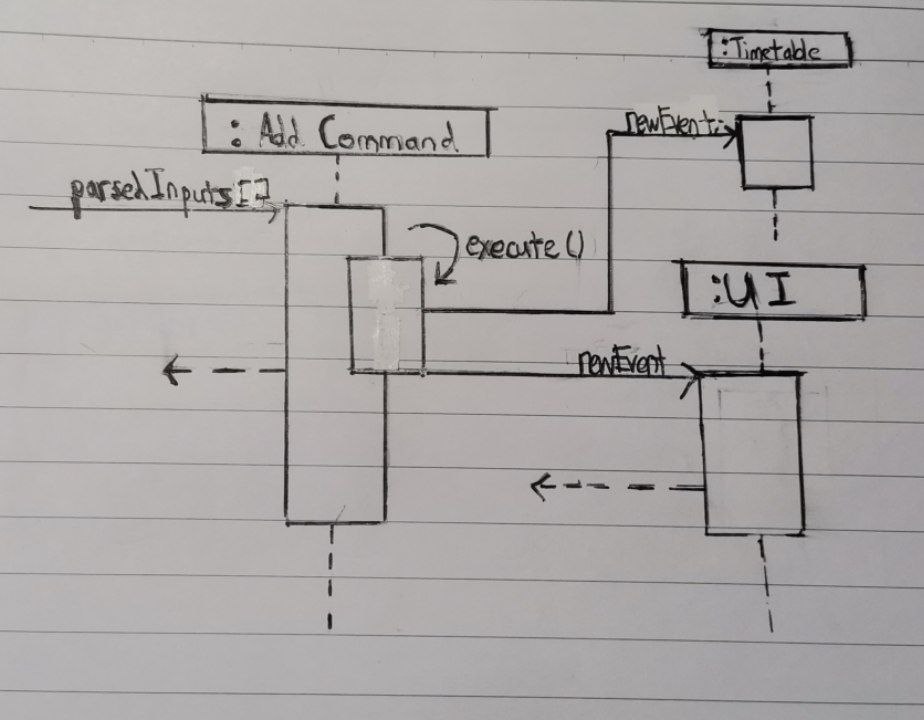 :Timetable
: Add Command
newEvent:
parsedInputs[]
execute()
:UI
newEvent